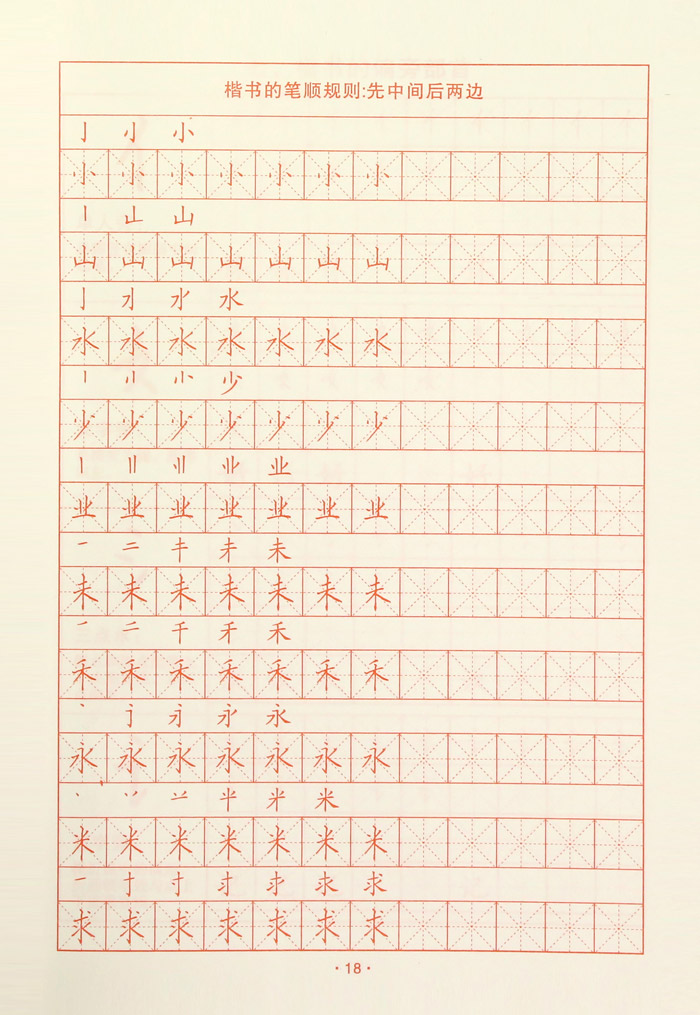 楷书的笔顺规则:先中间后两边
亅 小
小 小 小 小 小 小 小
丨 山
山 山 山 山 山 山 山
亅 水
水 水 水 水 水 水 水
丨 少
少 少 少 少 少 少 少
丨 业
业 业 业 业 业 业 业
一 二 未
未 未 未 未 未 未 未
禾
禾 禾 禾 禾 禾 禾 禾
丶 永
永 永 永 永 永 永 永
丶 米
米 米 米 米 米 米 米
一 求
求 求 求 求 求 求 求
·18·